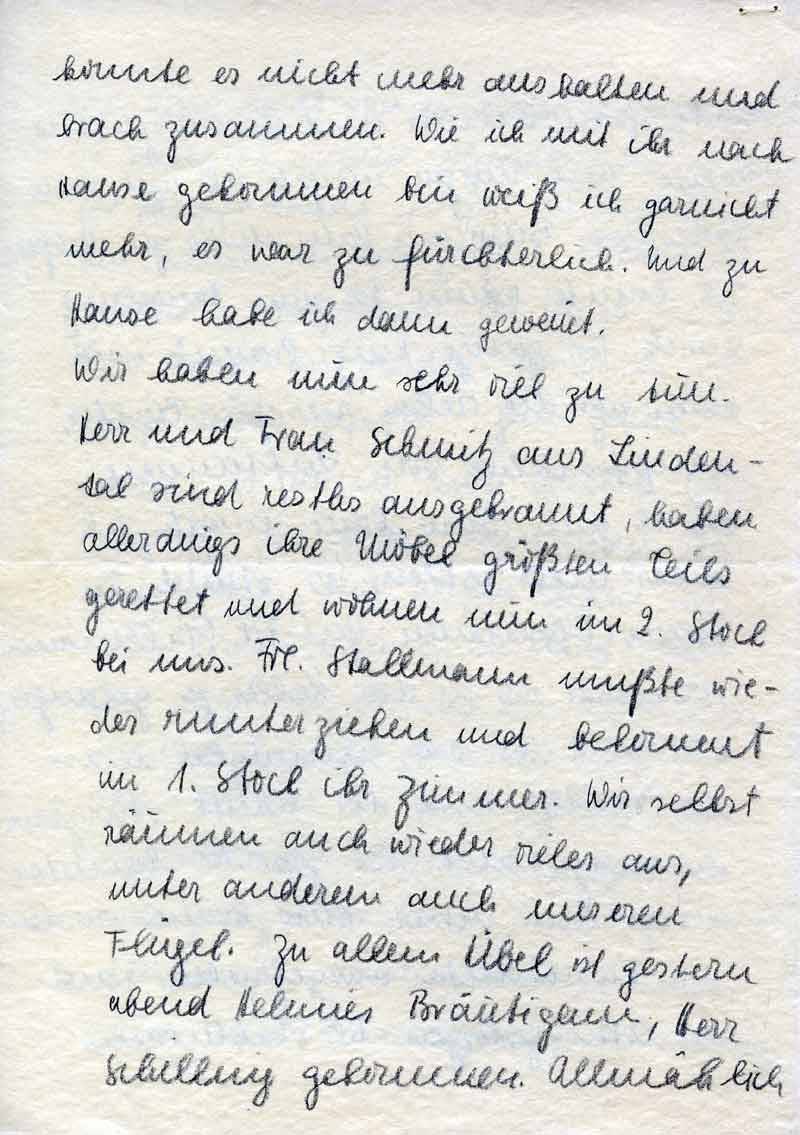 konnte es nicht mehr aushalten und
brach zusammen. Wie ich mit ihr nach
Hause gekommen bin weiß ich garnicht
mehr, es war zu fürchterlich. Und zu
Hause habe ich dann geweint.
Wir haben nun sehr viel zu tun.
Herr und Frau Schmitz aus Linden-
tal sind restlos ausgebrannt, haben
allerdings ihre Möbel größten Teils
gerettet und wohnen nun im 2. Stock
bei uns. Frl. Stallmann mußte wie-
der runterziehen und bekommt
im 1. Stock ihr Zimmer. Wir selbst
räumen auch wieder vieles aus,
unter anderem auch unseren
Flügel. Zu allem Übel ist gestern
abend Helmies Bräutigam, Herr
Schilling gekommen. Allmählich